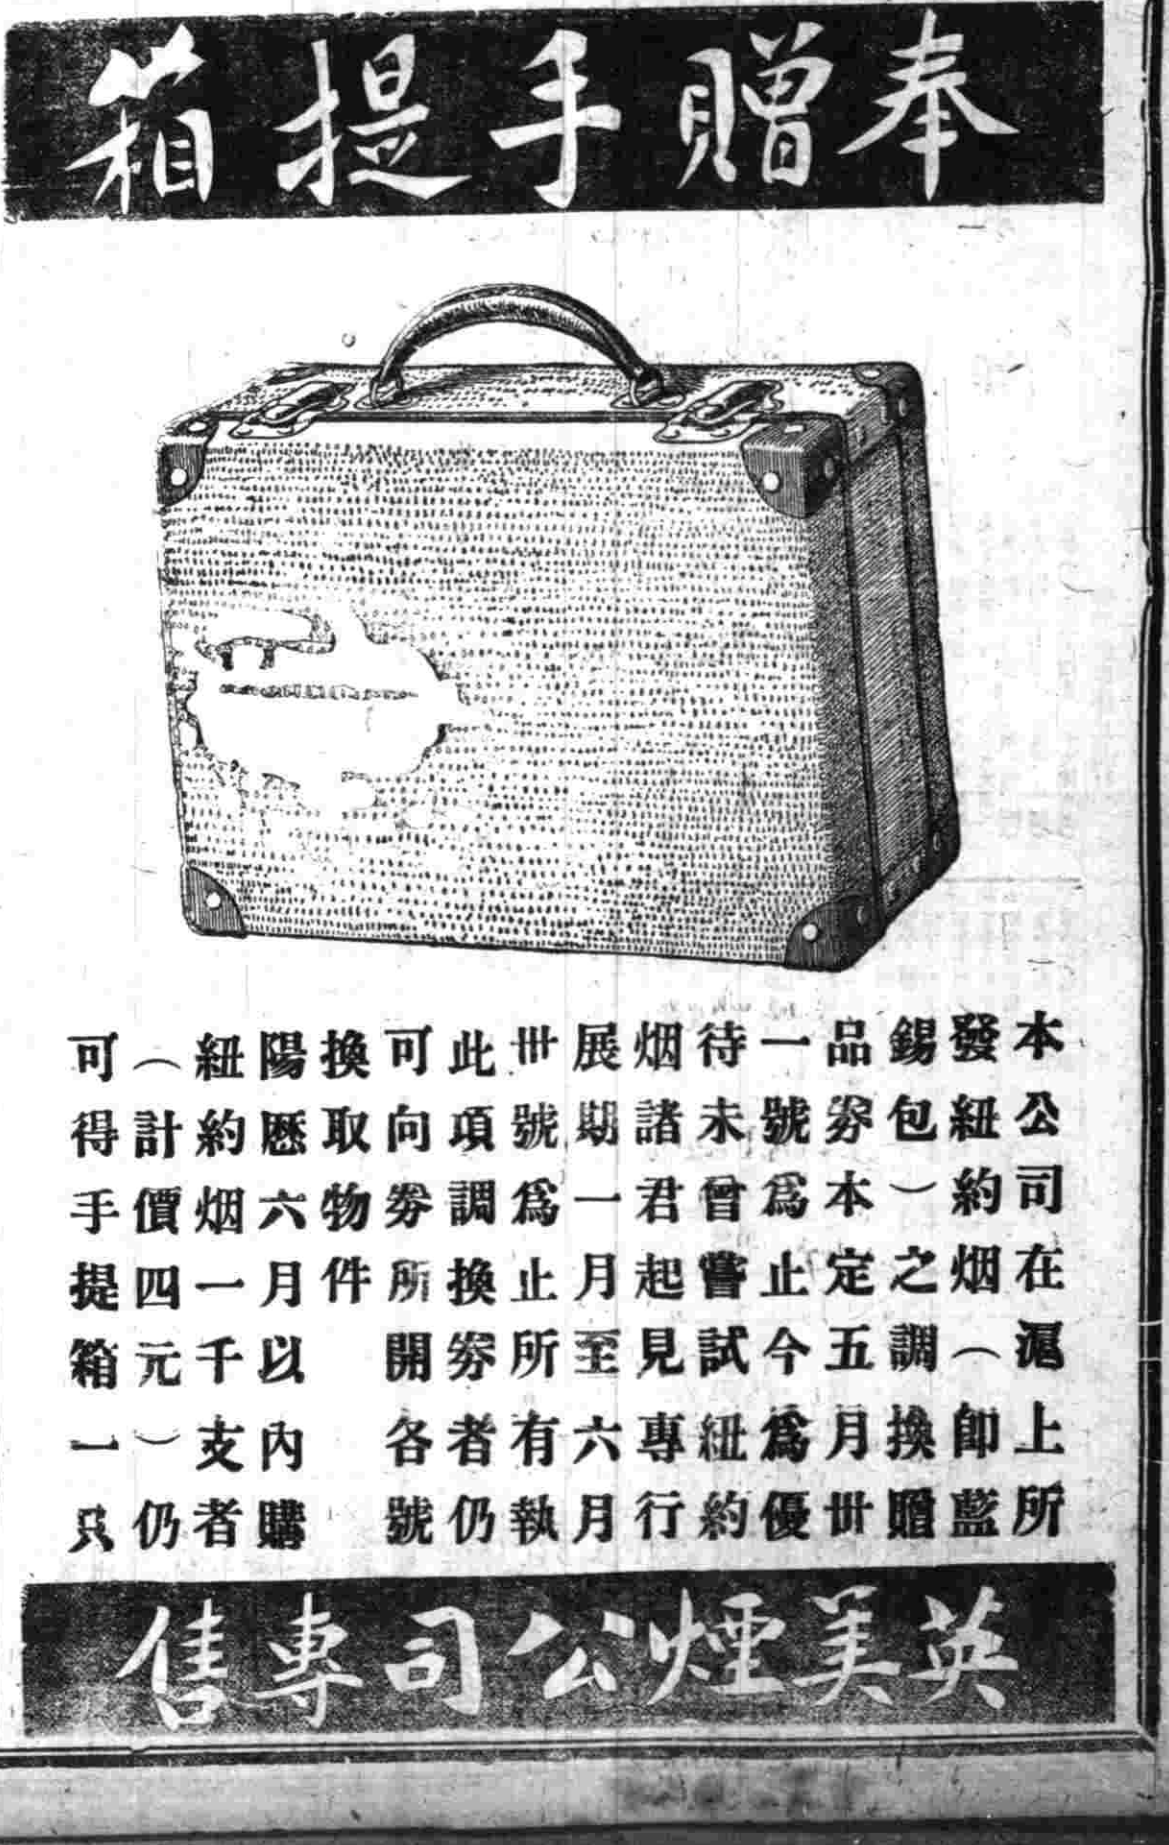 奉贈手提箱
本公司在滬上所
發紐約烟（卽藍
錫包）之調換贈
品券本定五月卅
一號爲止今爲優
待未曾嘗試紐約
烟諸君起見專行
展期一月至六月
卅號爲止所有執
此項調換券者仍
可向券所開各號
換取物件
陽曆六月以內購
紐約烟一千支者
（計價四元）仍
可得手提箱一只
英美煙公司專售